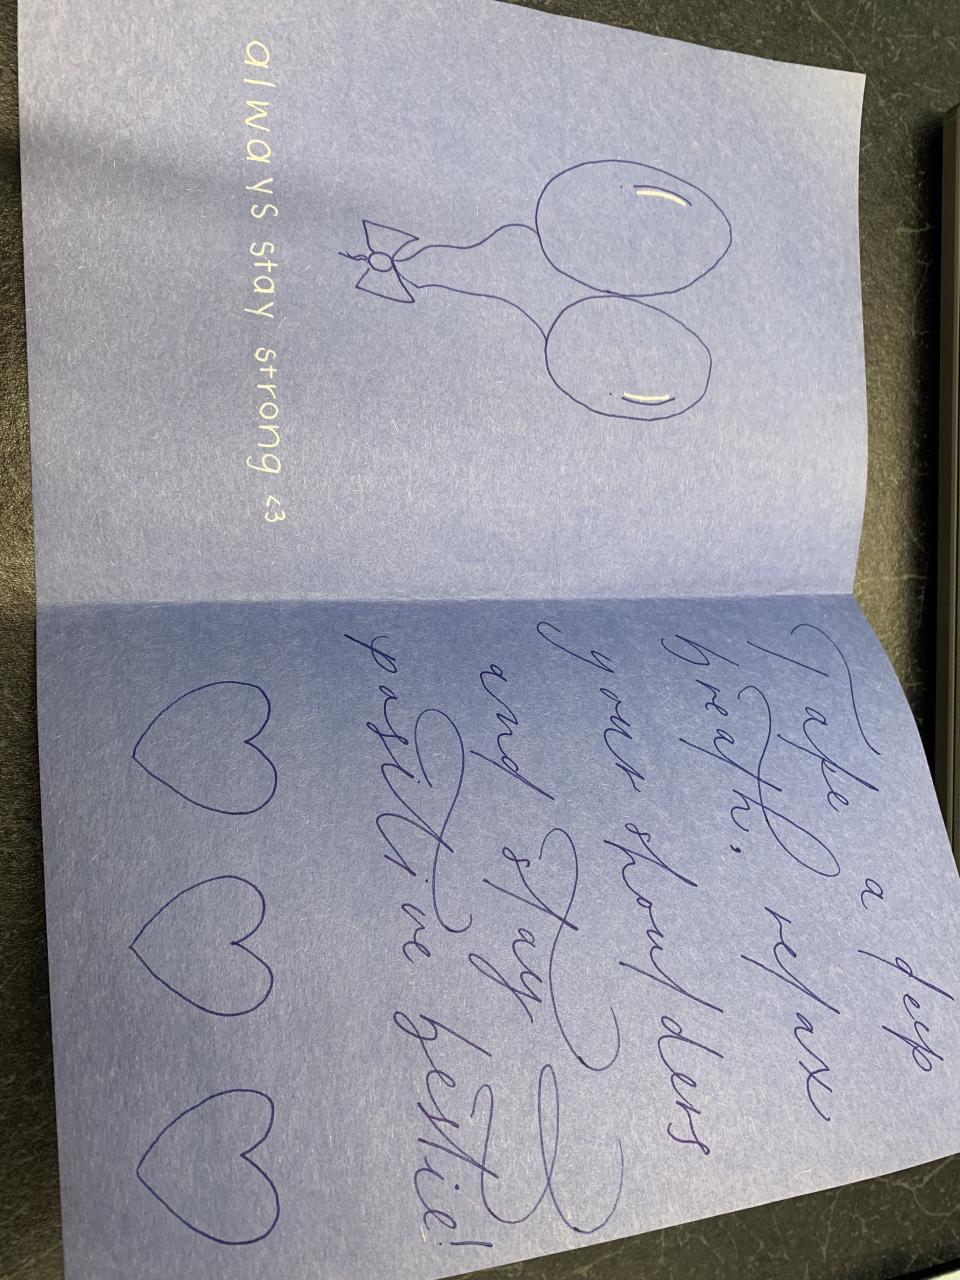 always stay strong <3
Take a deep
breath, relax
your shoulders
and stay
positive bestie!